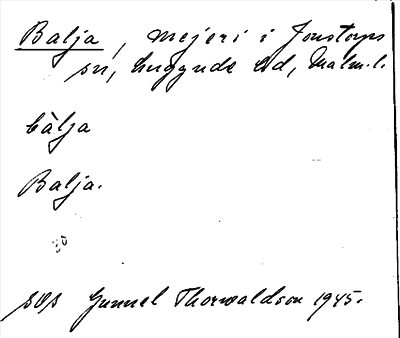 Balja, mejeri i Jonstorps
sn, Luggude hd, Malm.l.
bàlja
Balja.
SOS Gunnel Thorwaldson 1945.